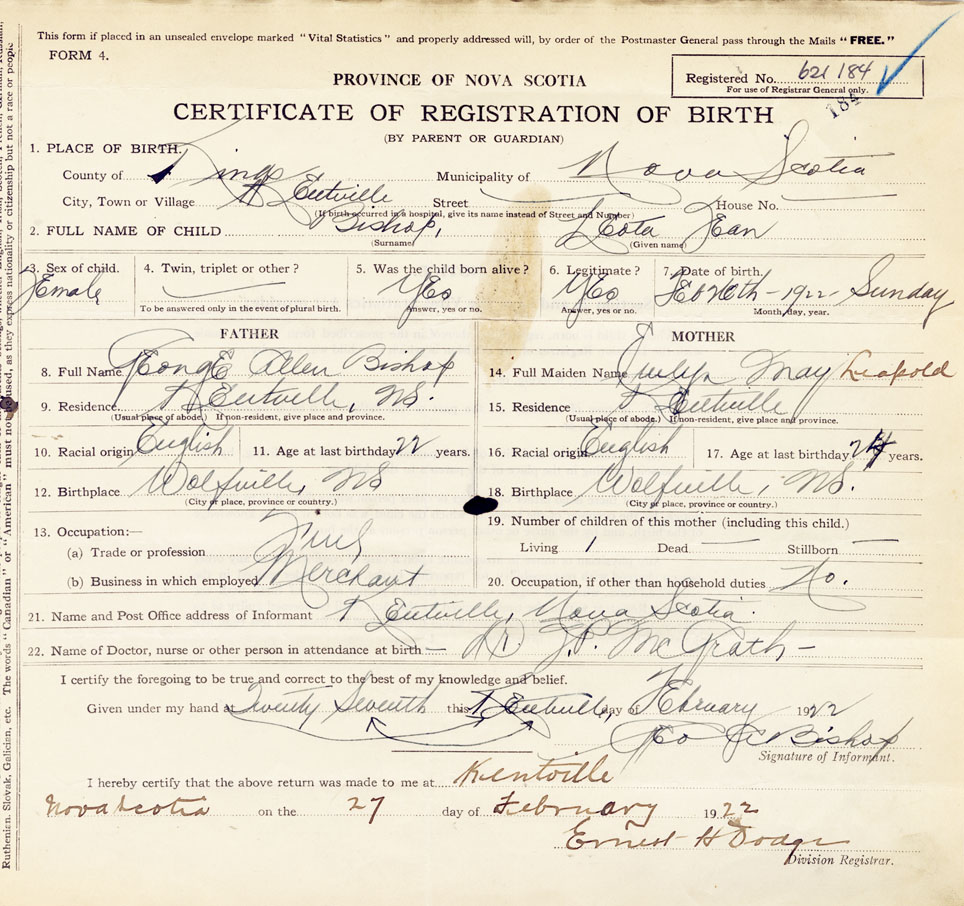 This form if placed in an unsealed envelope marked "Vital Statistics" and properly addressed will, by order of the Postmaster General pass through the Mails "FREE."
FORM 4.
Registered No. 621 184
For use of Registrar General only.
184
PROVINCE OF NOVA SCOTIA
CERTIFICATE OF REGISTRATION OF BIRTH
(BY PARENT OR GUARDIAN)
1. PLACE OF BIRTH.
County of Kings Municipality of Nova Scotia
City, Town or Village Kentville Street House No.
(If birth occurred in a hospital, give its name instead of Street and Number)
2. FULL NAME OF CHILD Bishop, Leota Jean
(Surname) (Given name)
3. Sex of child. 4. Twin, triplet or other? 5. Was the child born alive? 6. Legitimate? 7. Date of birth.
Female Yes Yes Feb 26th - 1922 - Sunday
To be answered only in the event of plural birth. Answer, yes or no. Answer, yes or no. Month, day, year.
FATHER
8. Full Name George Allen Bishop
9. Residence Kentville, NS.
(Usual place of abode.) If non-resident, give place and province.
10. Racial origin English 11. Age at last birthday 22 years.
12. Birthplace Wolfville, NS
(City or place, province or country.)
13. Occupation:—
(a) Trade or profession
(b) Business in which employed Merchant
MOTHER
14. Full Maiden Name May Leopold
15. Residence Kentville
(Usual place of abode.) If non-resident, give place and province.
16. Racial origin English 17. Age at last birthday 24 years.
18. Birthplace Wolfville, NS.
(City or place, province or country.)
19. Number of children of this mother (including this child.)
Living 1 Dead — Stillborn —
20. Occupation, if other than household duties No.
21. Name and Post Office address of Informant Kentville, Nova Scotia.
22. Name of Doctor, nurse or other person in attendance at birth — Dr J.P. McGrath —
I certify the foregoing to be true and correct to the best of my knowledge and belief.
Given under my hand at Twenty Seventh this Kentville, day of February 1922
Geo A Bishop
Signature of Informant.
I hereby certify that the above return was made to me at Kentville
Nova Scotia on the 27 day of February 1922
Ernest H Dodge
Division Registrar.
Ruthenian, Slovak, Galician, etc. The words "Canadian" or "American" must not be used, as they express nationality or citizenship but not a race or people